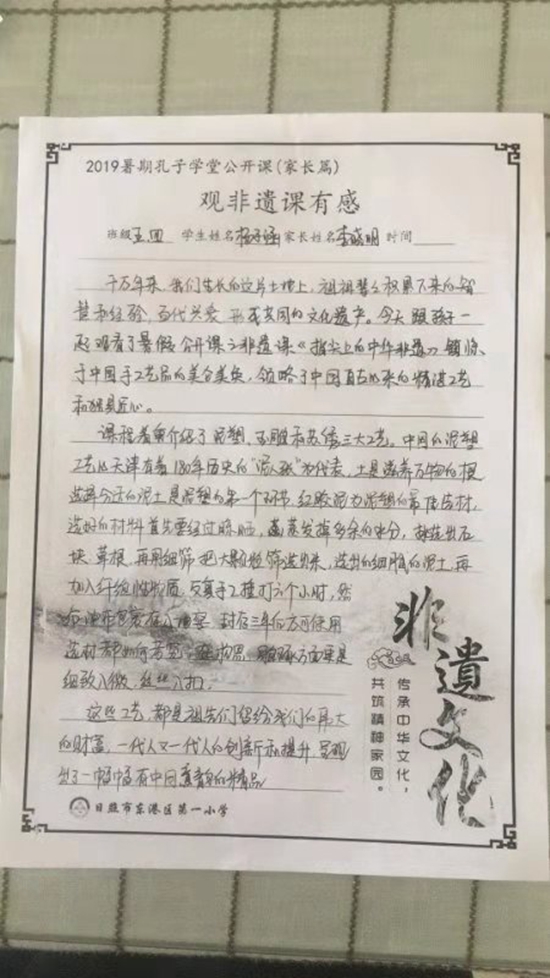 2019暑期孔子学堂公开课(家长篇)
观非遗课有感
班级五四 学生姓名 家长姓名李晓明 时间
千万年来,我们生长的这片土地上,祖祖辈辈积累下来的智
慧和经验,百代兴爱 形成共同的文化遗产。今天跟孩子一
起观看了暑假公开课之非遗课《指尖上的中华非遗》领略
于中国手工艺品的美仑美奂,领略了中国自古以来的精湛工艺
和独具匠心。
课程着重介绍了泥塑、玉雕和苏绣三大工艺。中国的泥塑
工艺以天津有着180年历史的“泥人张”为代表,土是滋养万物的根
选择合适的泥土是泥塑的第一个环节,红胶泥为泥塑的最佳选材,
选好的材料首先要经过晾晒,蒸发掉多余的水分,挑选出石
块、草根,再用细筛把大颗粒筛选出来,选出的细腻的泥土,再
加入纤维性物质,反复手工捶打六个小时,然
后油布包裹存入地窖 封存三年后方可使用
选材都如何苛刻 雕琢方面更是
细致入微,丝丝入扣。
这些工艺,都是祖先们留给我们的伟大
的财富,一代人又一代人的创新和提升,呈现
出了一幅幅有中国意韵的精品
非遗文化
传承中华文化,
共筑精神家园。
日照市东港区第一小学